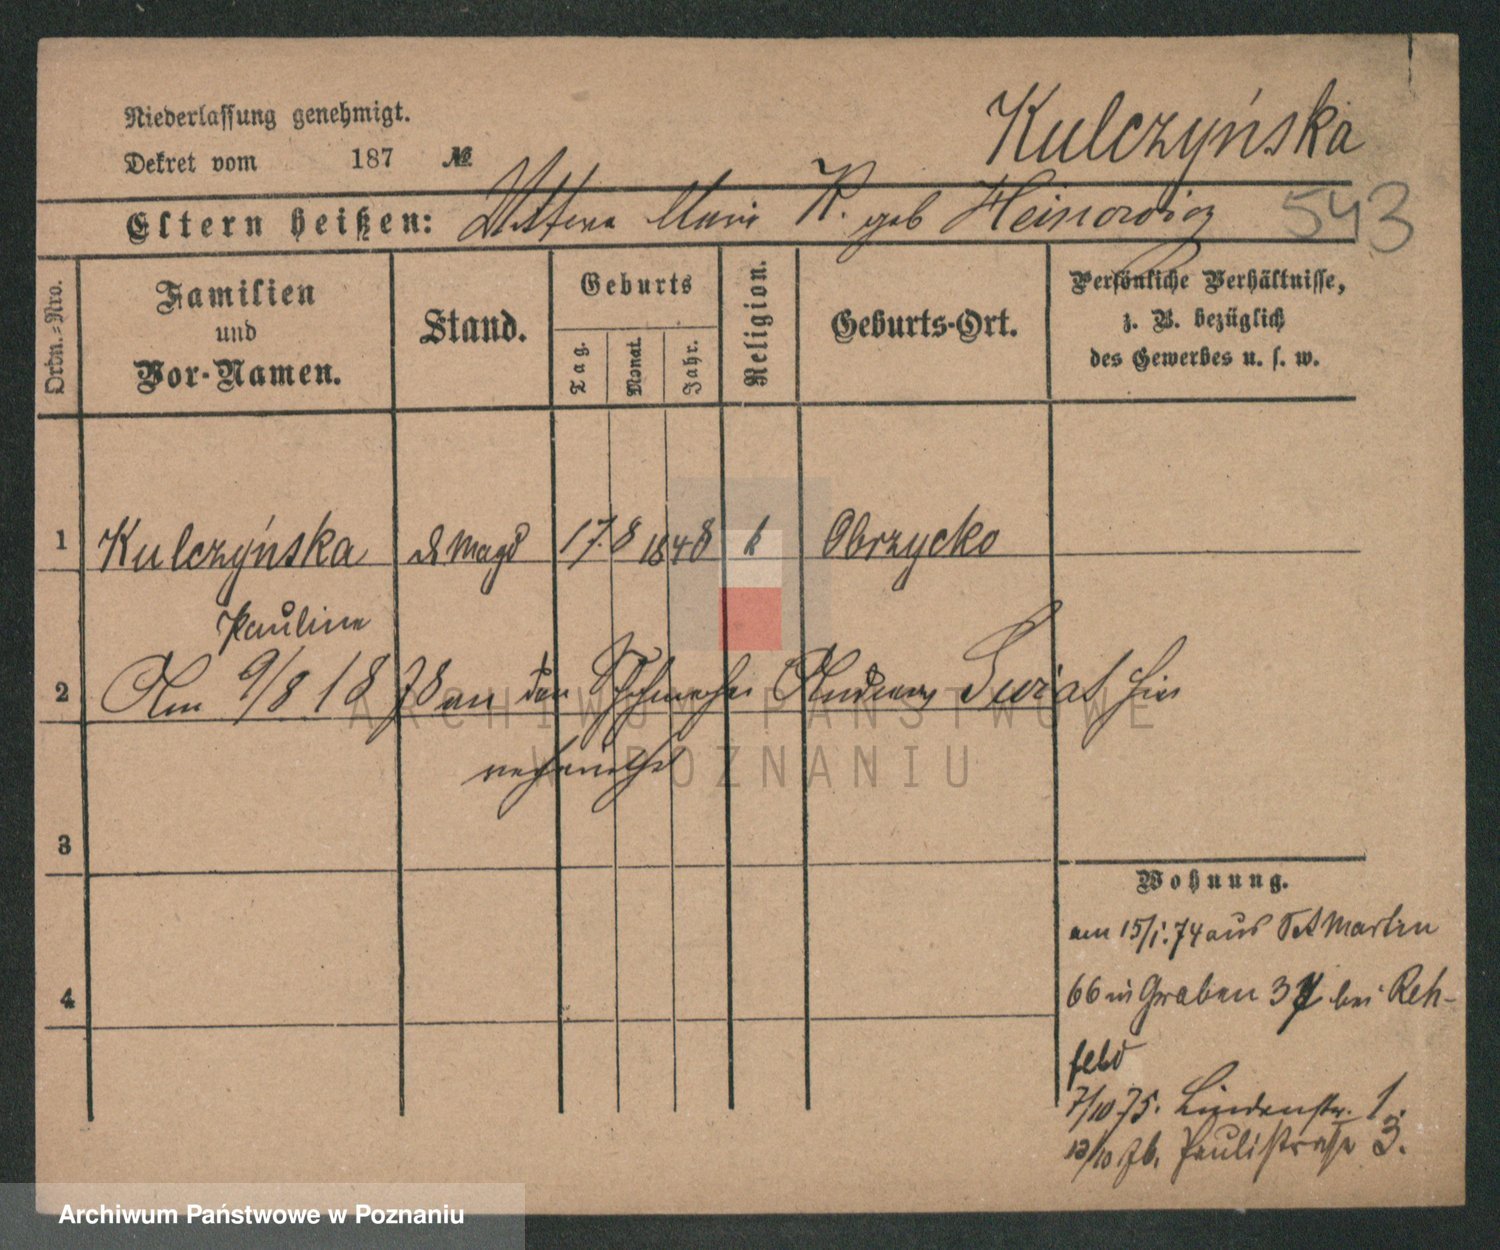 Niederlassung genehmigt.
Kulczyńska
Dekret vom 187 №
Eltern heißen: Marie K. geb Heinowicz
543
Ordn.-Nro.
Familien
und
Vor-Namen.
Stand.
Geburts
Tag.
Monat.
Jahr.
Religion.
Geburts-Ort.
Persönliche Verhältnisse,
z. B. bezüglich
des Gewerbes u. s. w.
1 Kulczyńska d Magd 17. 8 1848 k Obrzycko
Pauline
2 Am 9/8 1878 an den Schuhmacher Andreas Swiat hier
verheirathet
3
4
Wohnung.
am 15/1. 74 aus St Martin
66 in Graben 37 bei Reh-
feld
7/10 75. Lindenstr. 1.
12/10 76. Paulistraße 3.
ARCHIWUM PAŃSTWOWE
W POZNANIU
Archiwum Państwowe w Poznaniu